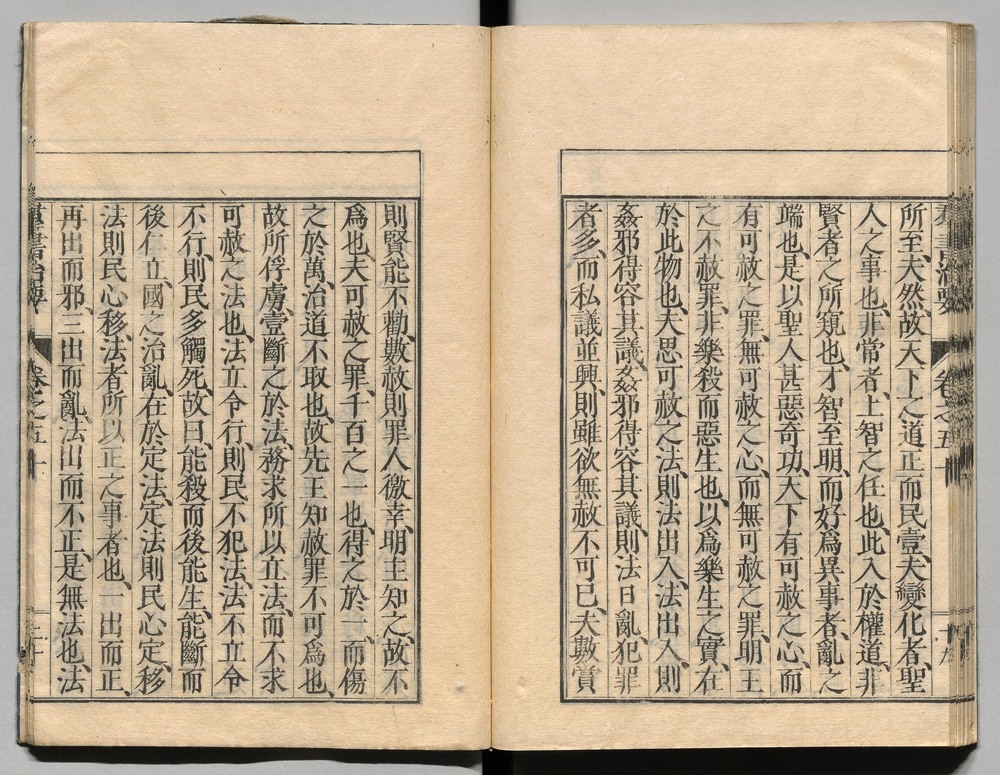 所至、夫然、故天下之道正而民壹、夫變化者、聖
人之事也、非常者、上智之任也、此入於權道、非
賢者之所窺也、才智至明、而好爲異事者、亂之
端也、是以聖人甚惡奇功、天下有可赦之心、而
有可赦之罪、無可赦之心、而無可赦之罪、明王
之不赦罪、非樂殺而惡生也、以爲樂生之實、在
於此物也、夫思可赦之法、則法出入、法出入、則
姦邪得容其議、姦邪得容其議、則法日亂、犯罪
者多、而私議並興、則雖欲無赦不可已、夫數賞
則賢能不勸、數赦則罪人徼幸、明主知之、故不
爲也、夫可赦之罪、千百之一也、得之於一、而傷
之於萬、治道不取也、故先王知赦罪不可爲也、
故所俘虜、壹斷之於法、務求所以立法、而不求
可赦之法也、法立令行、則民不犯法、法不立令
不行、則民多觸死、故曰、能殺而後能生、能斷而
後仁立、國之治亂、在於定法、定法則民心定、移
法則民心移、法者所以正之事者也、一出而正、
再出而邪、三出而亂、法出而不正、是無法也、法